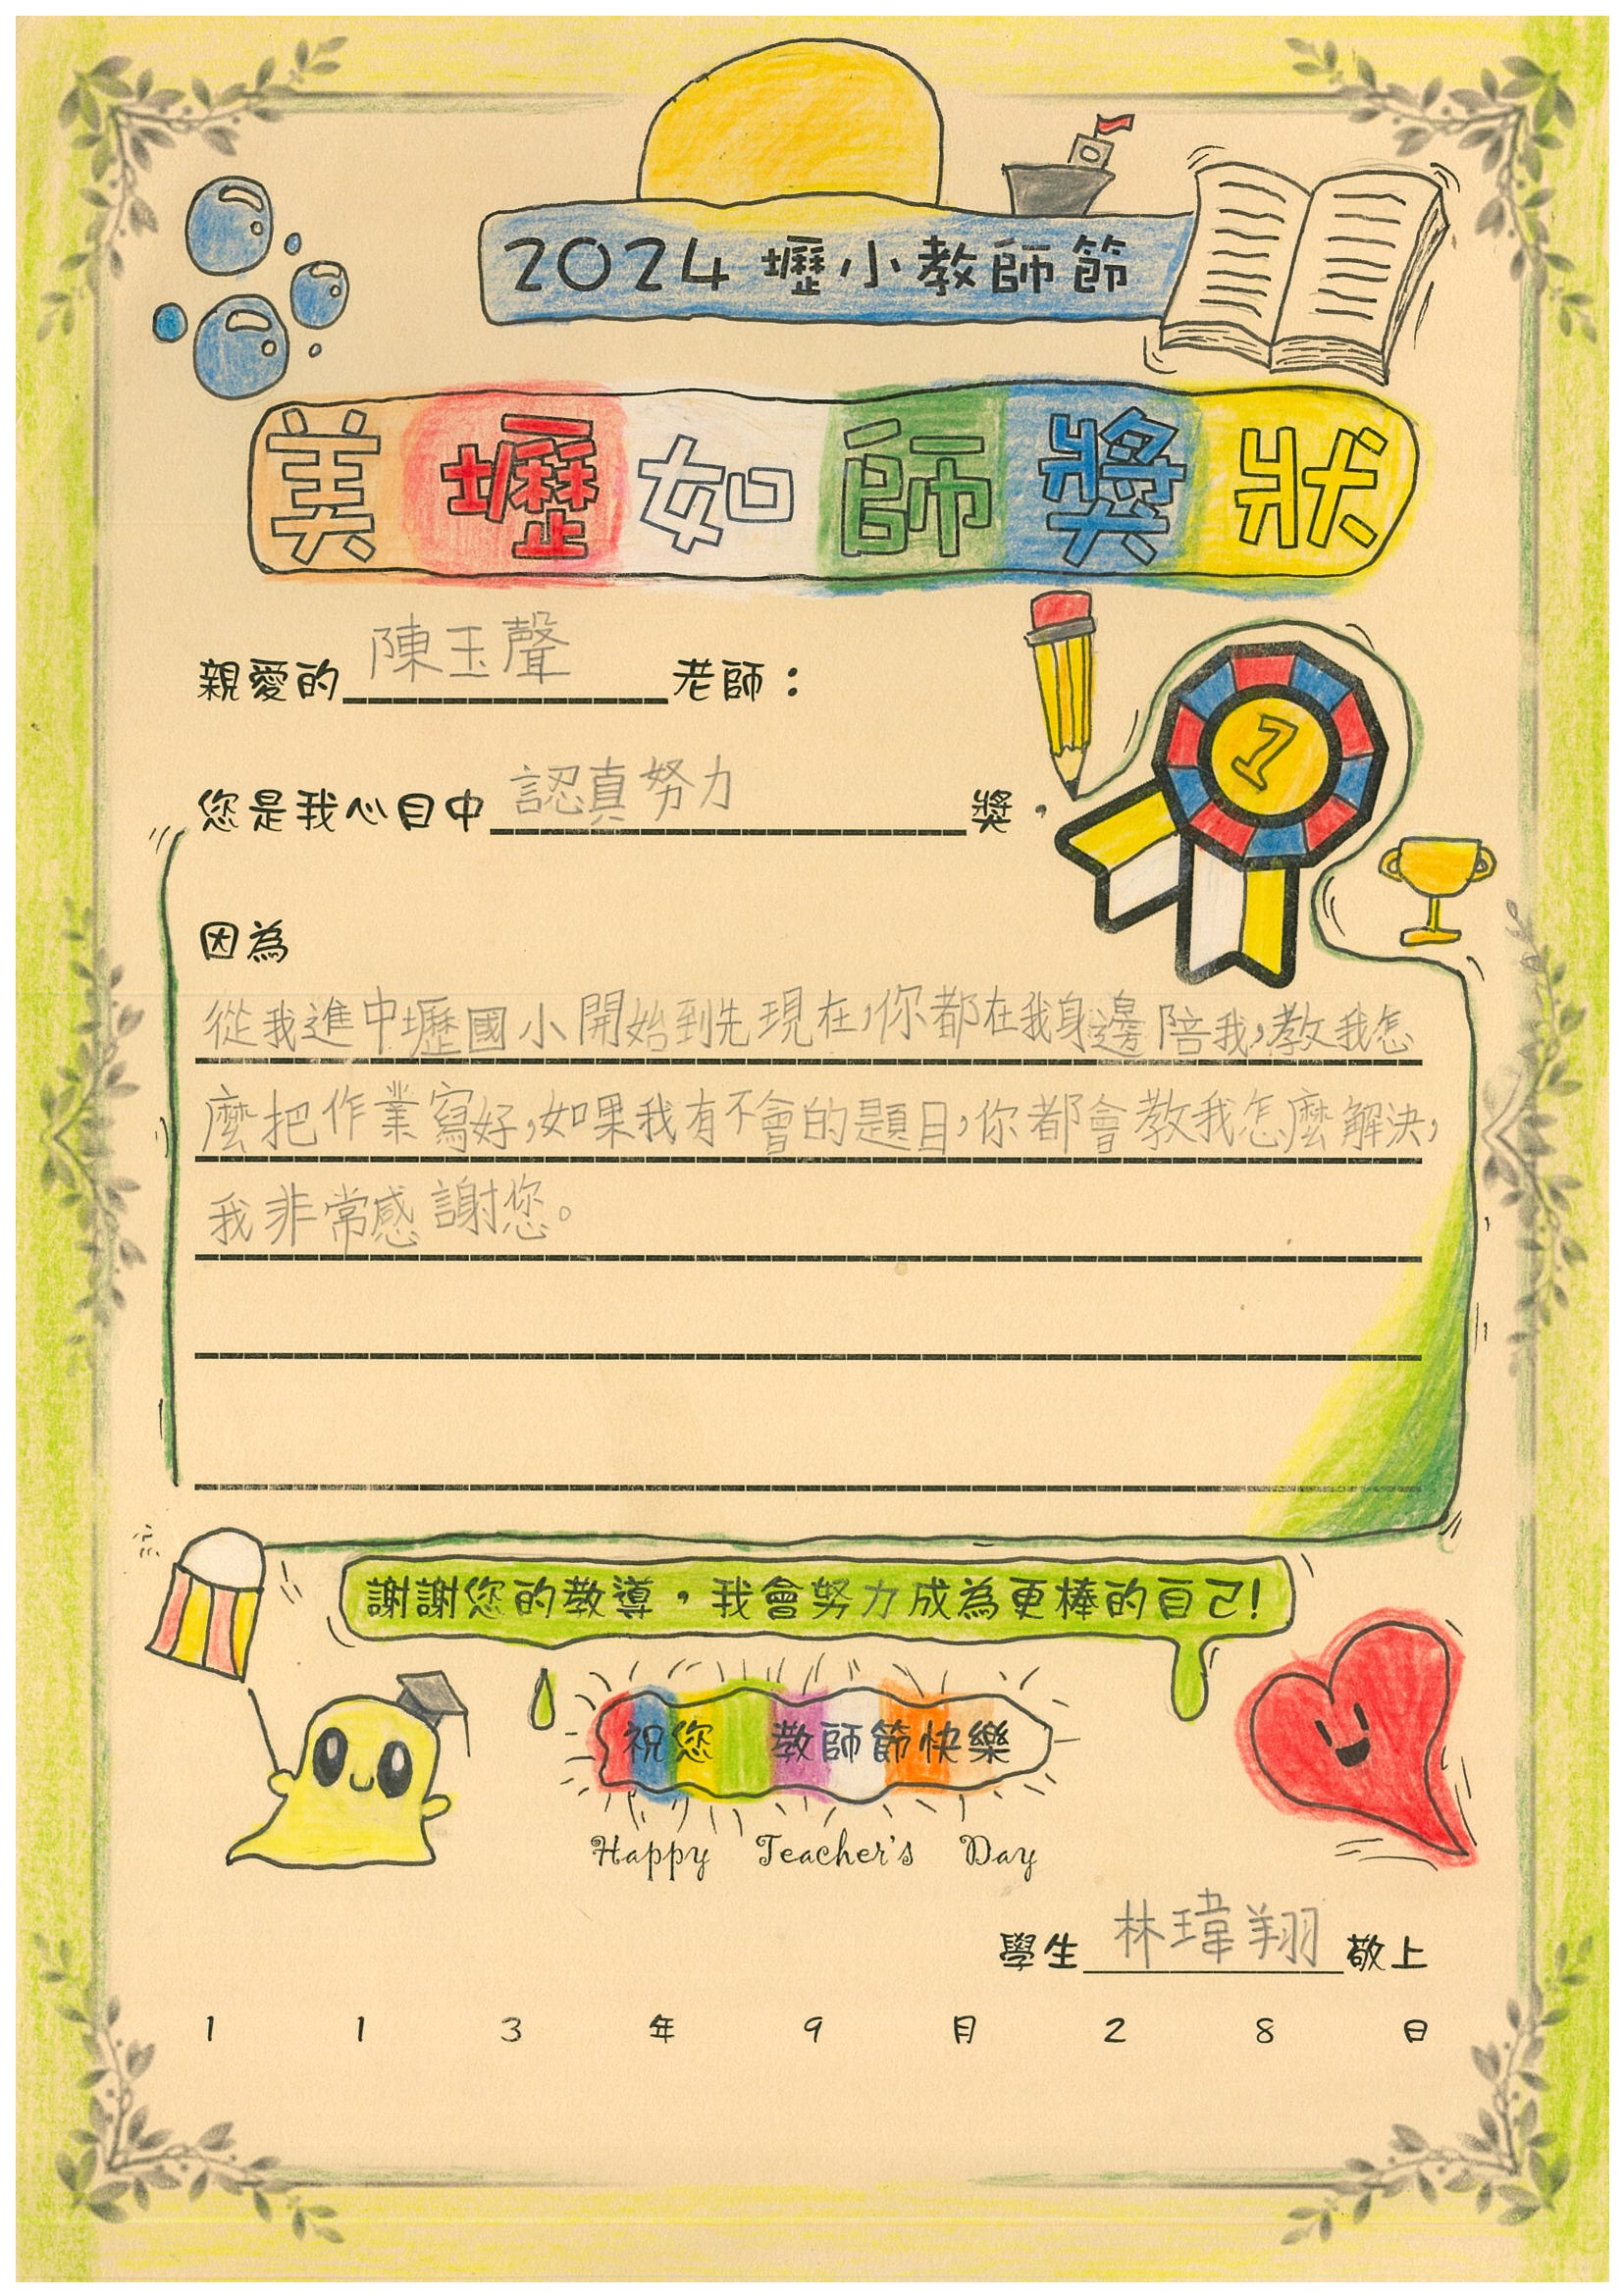 2024 壢小教師節
美壢如師獎狀
親愛的陳玉聲老師：
您是我心目中認真努力獎，
因為
從我進中壢國小開始到先現在,你都在我身邊陪我,教我怎
麼把作業寫好,如果我有不會的題目,你都會教我怎麼解決,
我非常感謝您。
謝謝您的教導，我會努力成為更棒的自己!
祝您 教師節快樂
Happy Teacher's Day
學生林瑋翔敬上
113年9月28日
1